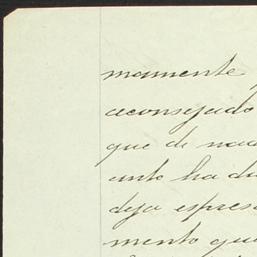 mamente
aconsejado
que de nad
unto ha di
deja espres
mento que